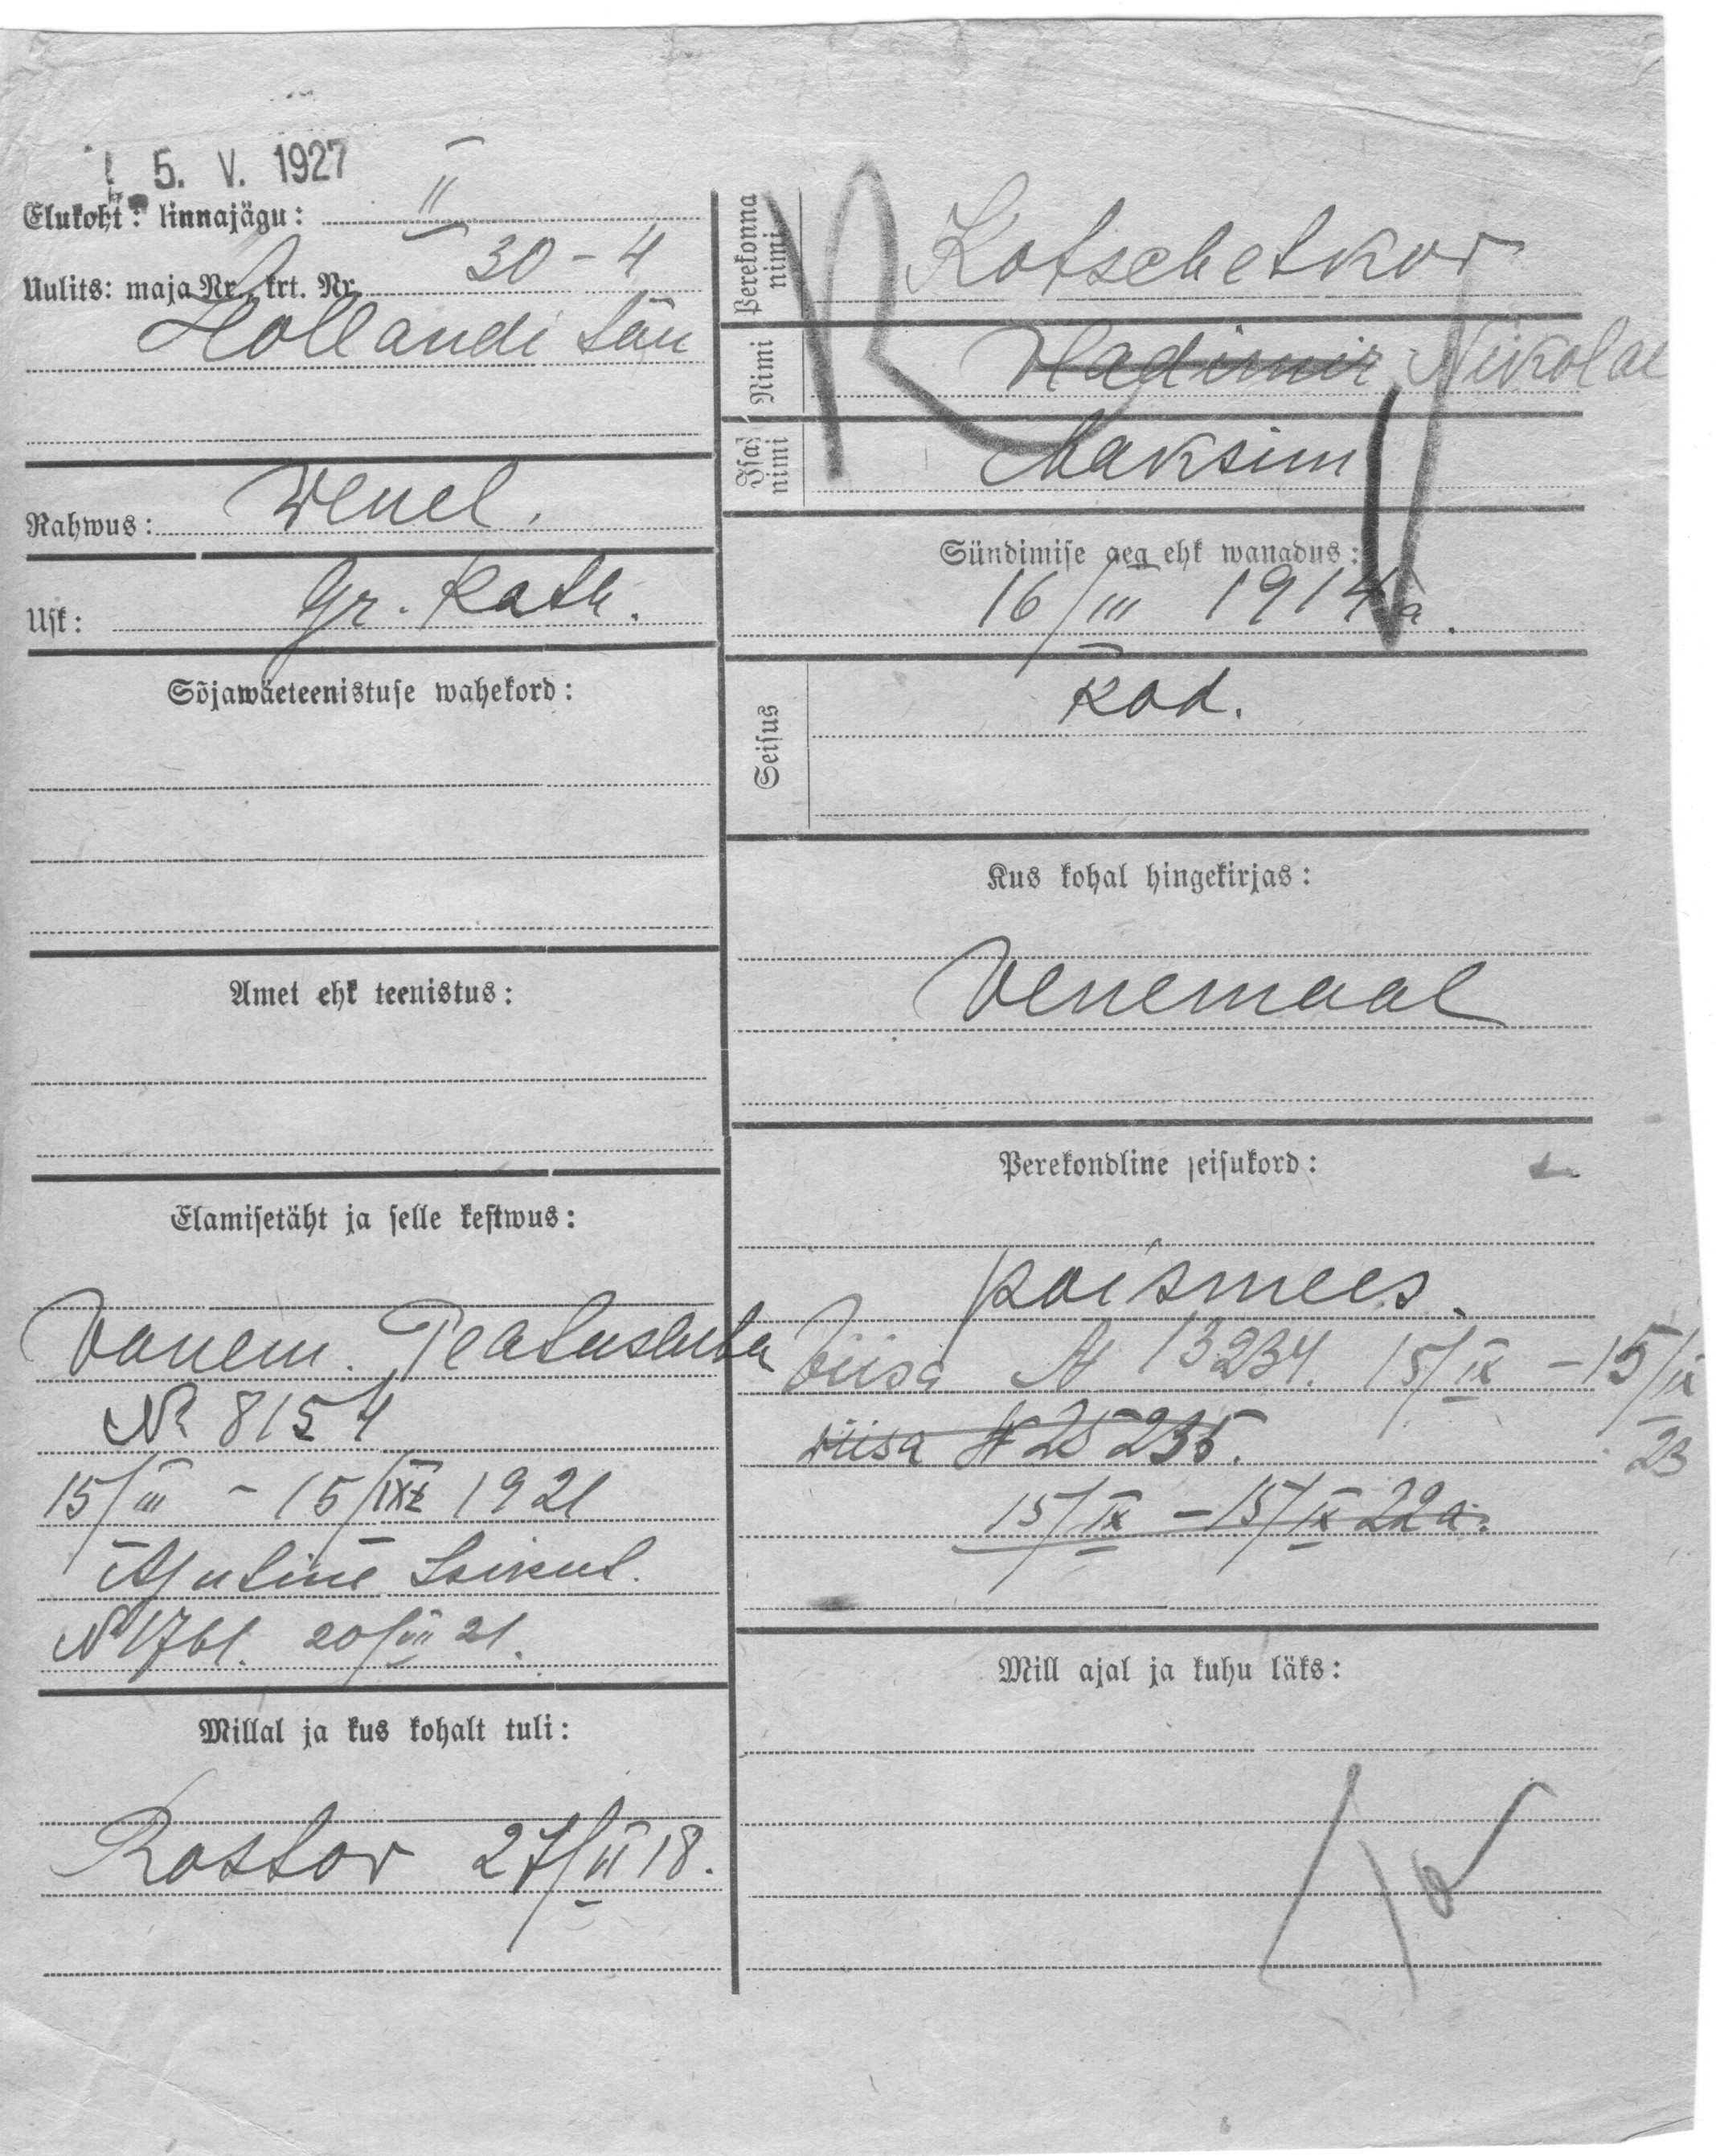 5. V. 1927
Elukoht: linnajägu: II
Uulits: maja Nr., krt. Nr. 30-4
Hollandi tän
Rahwus: Wenel.
Usk: Gr. Kath.
Sõjawäeteenistuse wahekord:
Amet ehk teenistus:
Elamisetäht ja selle kestwus:
Vanem. Teatusleht
№ 8154
15/III - 15/IX 1921
Ajutine Isikut.
№ 1761. 20/VII 21.
Millal ja kus kohalt tuli:
Rostov 27/II 18.
Perekonna nimi Kotschetkov
Nimi Vladimir Nikolai
Isa nimi Maksim
Sündimise aeg ehk wanadus:
16/III 1914 a.
Seisus Kod.
Kus kohal hingekirjas:
Venemaal
Perekondline seisukord:
poismees.
Viisa № 13234. 15/IX - 15/IX
23
viisa № 25235.
15/IX - 15/IX 22 a.
Mill ajal ja kuhu läks: